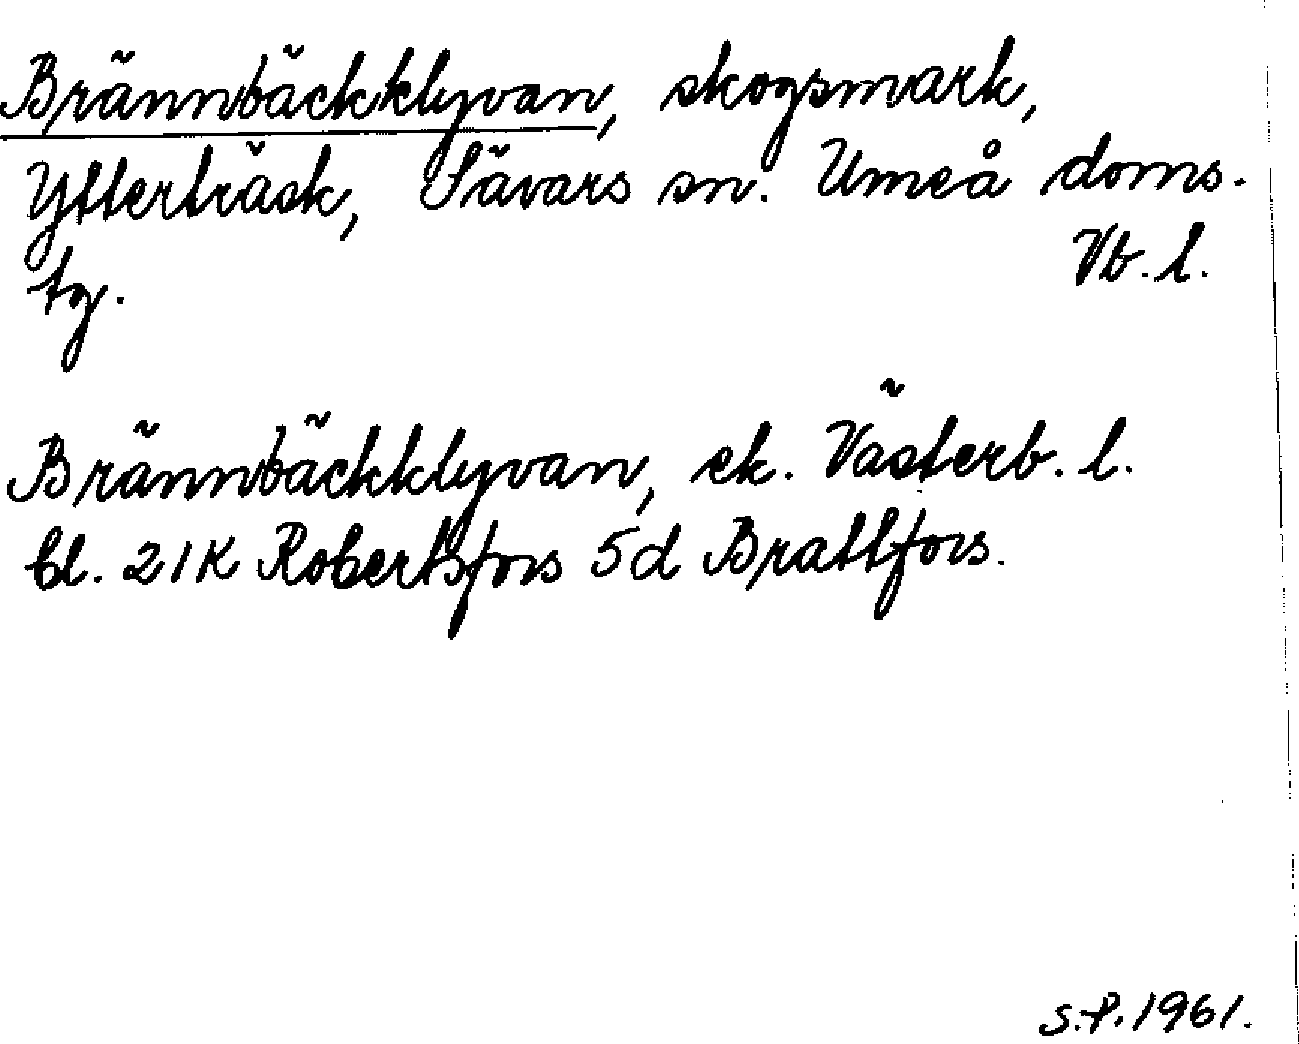 Brännbäckklyvan, skogsmark,
Ytterträsk, Sävars sn. Umeå doms.
tg. Vb. l.
Brännbäckklyvan, ek. Västerb. l.
bl. 21K Robertsfors 5d Brattfors.
S.P. 1961.